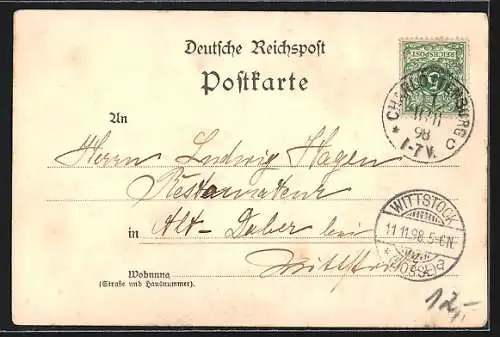 Deutsche Reichspost
Postkarte
REICHSPOST
5
CHARLOTTENBURG
11 11
98
1-7V.
* C
An
Herrn Ludwig Hagen
Restaurateur
in Alt-Daber bei
Wittstock
WITTSTOCK
11.11.98.5-6N.
(DOSSE)
Wohnung
(Straße und Hausnummer).
12,-